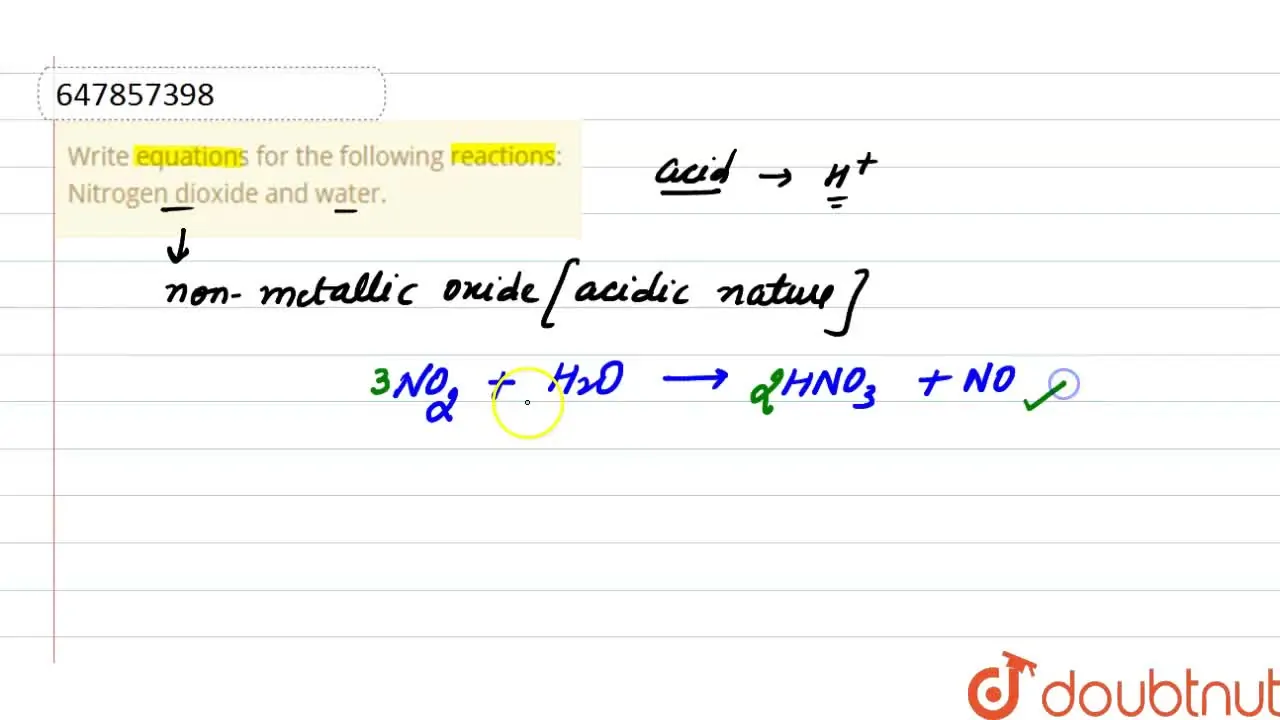 647857398
Write equations for the following reactions:
Nitrogen dioxide and water.
acid → H+
↓
non-metallic oxide [acidic nature]
3NO2 + H2O → 2HNO3 + NO ✓
doubtnut